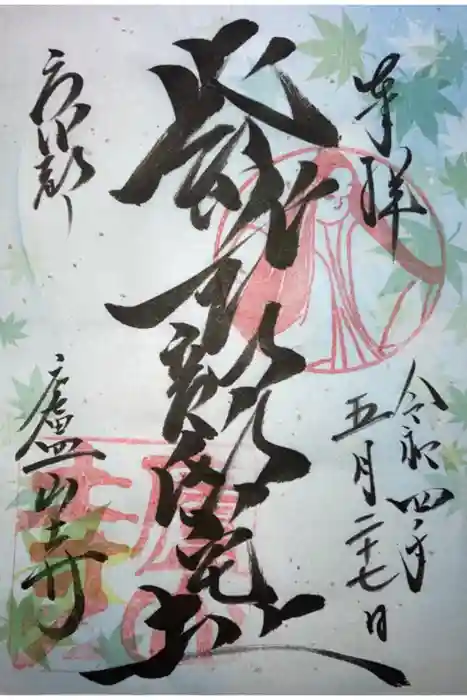 奉拝
令和四年
五月二十七日
紫式部邸宅址
京都
廬山寺